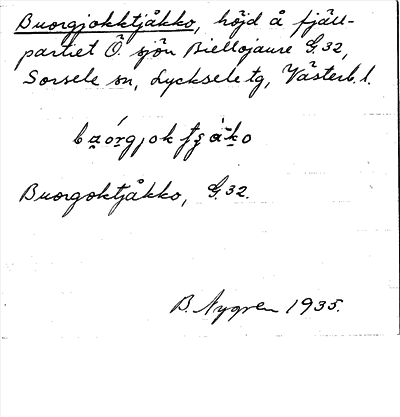 Buorgjokktjåkko, höjd å fjäll-
partiet Ö. sjön Biellojaure G.32,
Sorsele sn, Lycksele tg, Västerb. l.
Buorgoktjåkko, G.32.
B. Nygren 1935.